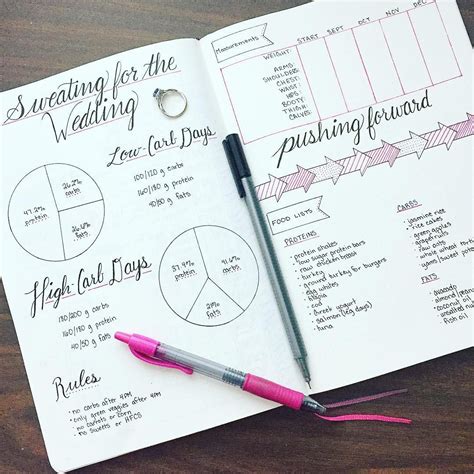 Sweating for the
Wedding
Low-Carb Days
100/120 g carbs
160/180 g protein
40/60 g fats
47.2%
protein
26.2%
carbs
26.6%
fats
High-Carb Days
180/200 g carbs
160/180 g protein
40/50 g fats
37.4%
protein
41.6%
carbs
21%
fats
Rules
• no carbs after 4PM
• only green veggies after 4PM
• no carrots or corn
• no sweets or HFCS
Measurements
START SEPT OCT NOV DEC
WEIGHT:
ARMS:
SHOULDERS:
CHEST:
WAIST:
HIPS:
BOOTY:
THIGH:
CALVES:
pushing forward
FOOD LISTS
PROTEINS
• protein shakes
• low sugar protein bars
• raw chicken breast
• turkey
• ground turkey for burgers
• egg whites
• tilapia
• cod
• Greek yogurt
• salmon (leg days)
• tuna
CARBS
• jasmine rice
• rice cakes
• green apples
• grapefruit
• raw oats
• whole wheat
• yam/sweet potato
FATS
• avocado
• almond/peanut
• coconut
• walnuts
fish oil